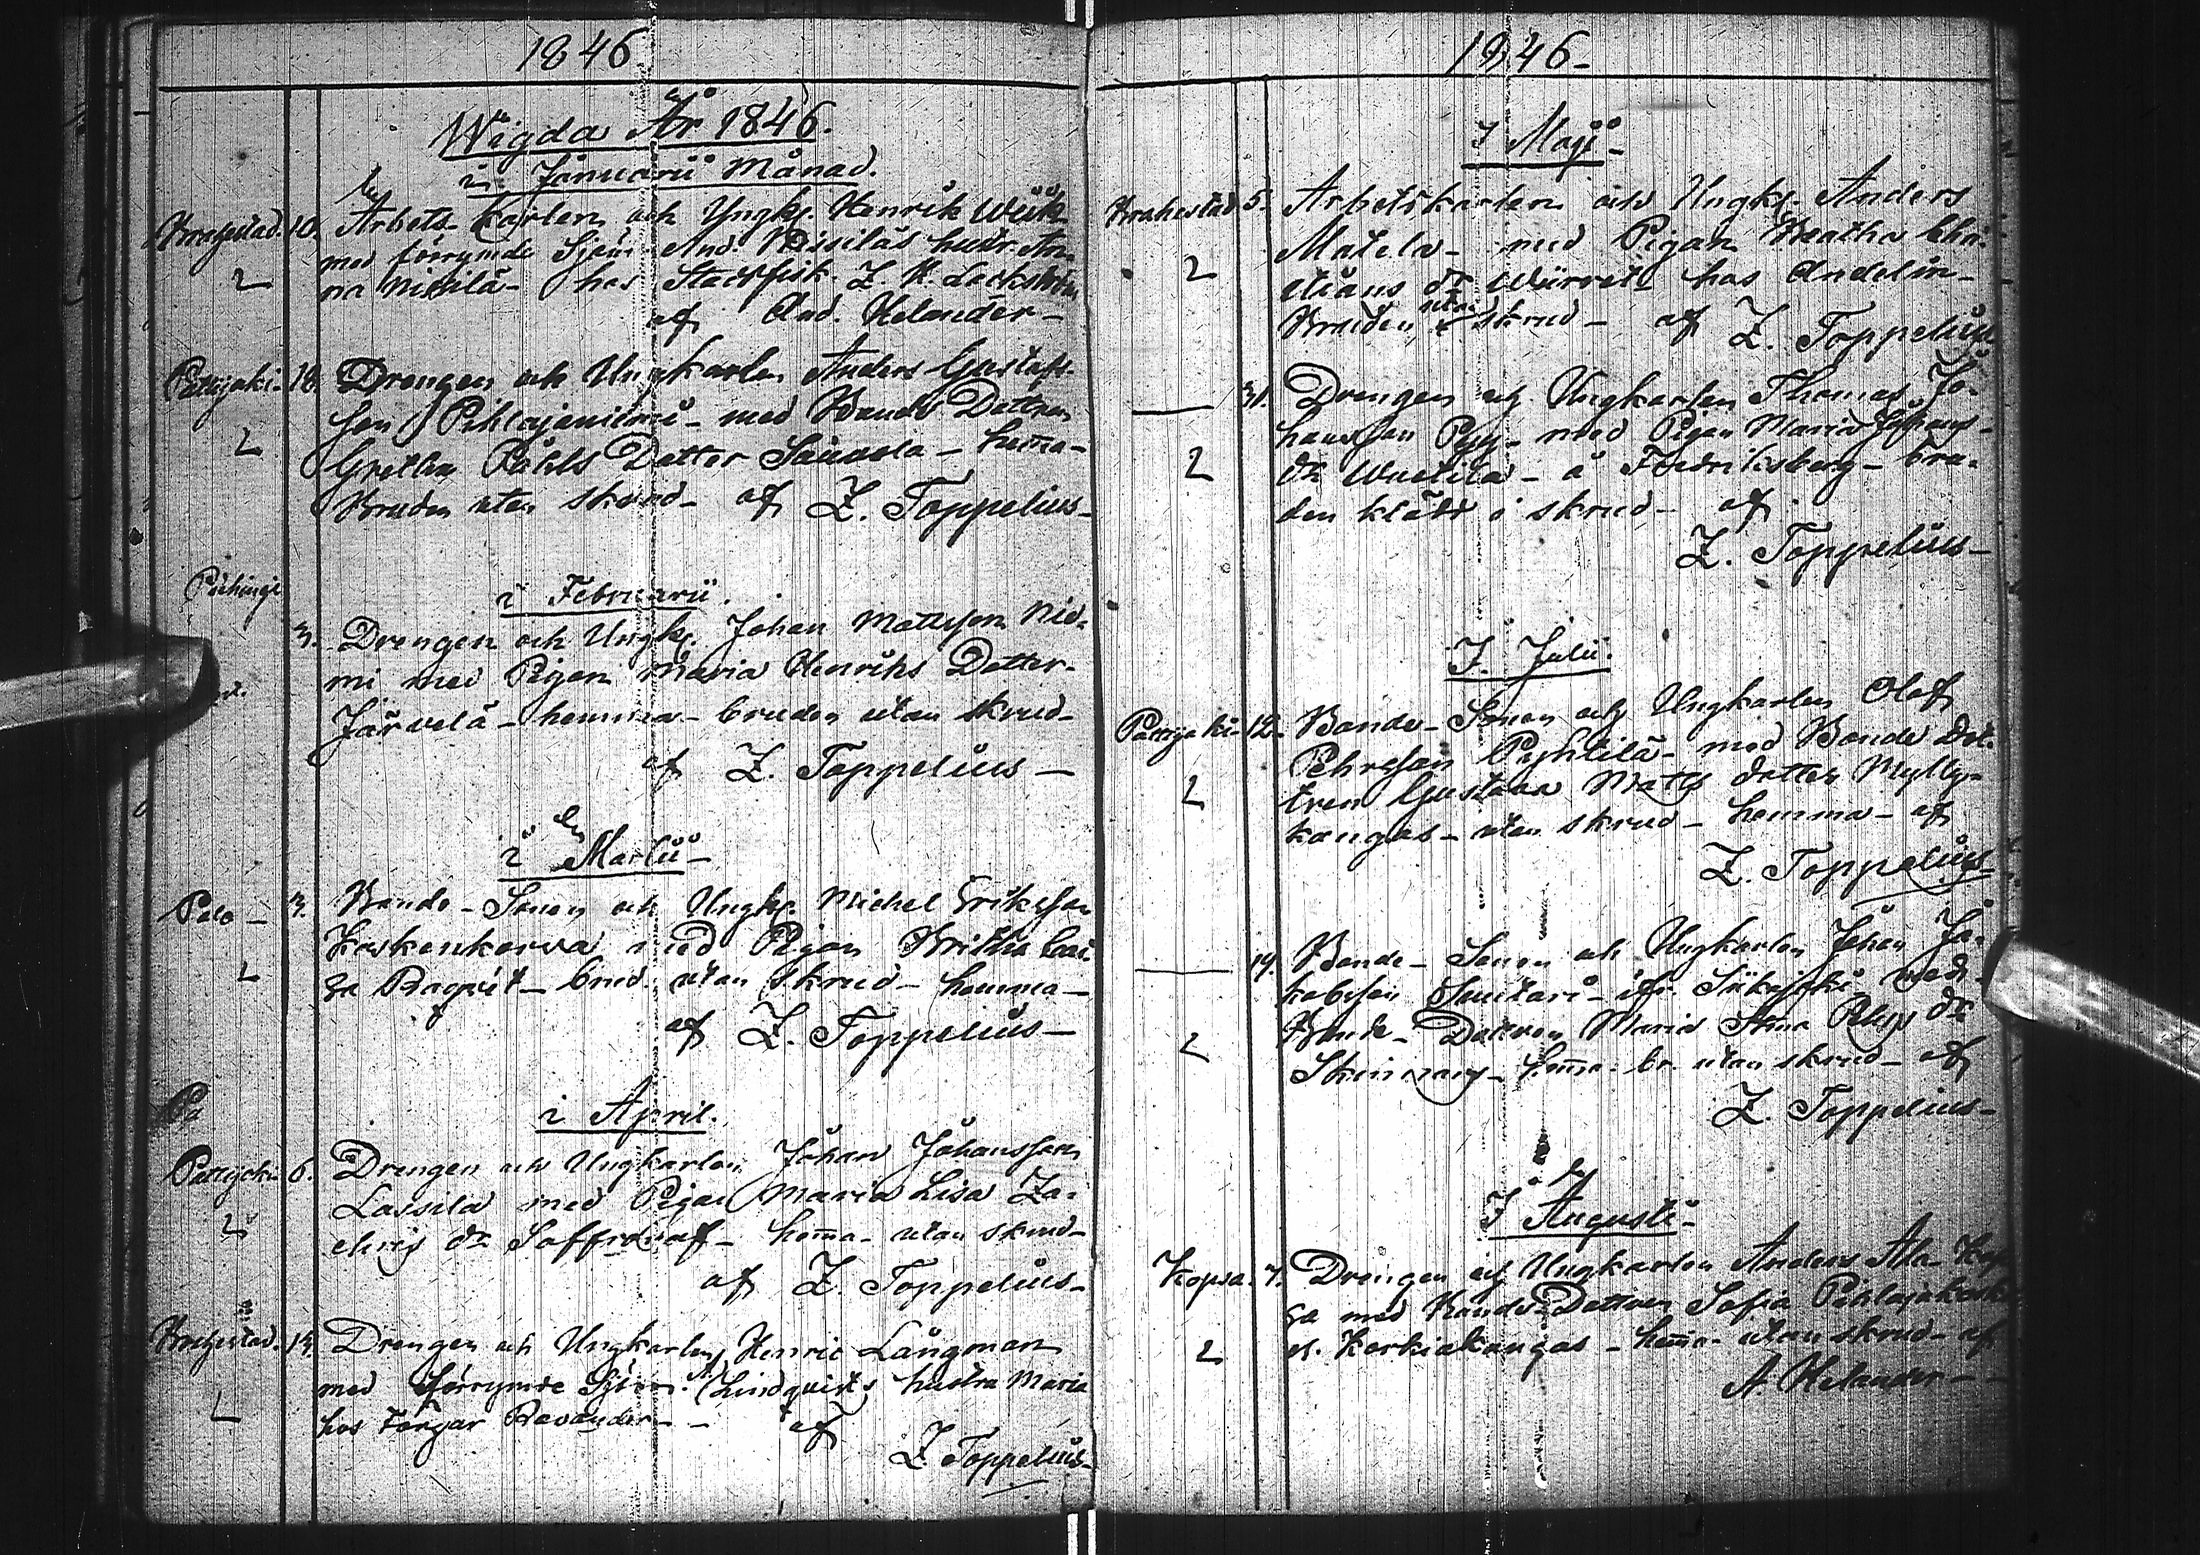 1846
Wigda År 1846.
i Januarii Månad.
Brahestad. 10. Arbets-Karlen och Yngkg. Henrik Wiik
med förrymde Sjöm. And. Nissiläs hustr. An-
2 na Nissilä - hos Stadsfisk. Z. H. Lackström
af And. Helander -
Pattijoki - 18. Drengen och Ungkarlen Anders Gustafs-
son Pihlajamäki - med Bonde Dottren
2 Gretha Påhls Dotter Sauvola - hem̄a -
Bruden utan skrud - af Z. Toppelius -
i Februarii.
3. Drengen och Ungkg. Johan Mattsson Nie-
mi med Pigan Maria Henriks Dotter
Järvelä - hemma - bruden utan skrud -
af Z. Toppelius -
i Martii -
Palo - 3. Bonde-Sonen och Ungkg. Michel Eriksson
Koskenkorva med Pigan Britha Cai-
2 sa Bagvist - brud. utan skrud - hemma -
af Z. Toppelius -
Pa
i April.
Pattijoki 6. Drengen och Ungkarlen Johan Johansson
Lassila med Pigan Maria Lisa Za-
2 chris dr - hem̄a - utan skrud -
af Z. Toppelius -
Brahestad. 13. Drengen och Ungkarlen Henric Långman
med förrymde Sjöm. Lindqvists hustru Maria
2 hos Färgar Bavander - - af
Z Toppelius -
1846 -
I Maji -
Brahestad 5. Arbetskarlen och Ungkg. Anders
Matela - med Pigan Beatha Chri-
2 stians dr Wirret hos Andelin -
Bruden utan skrud - af Z. Toppelius
31. Drengen och Ungkarlen Thomas Jo-
hansson Pyy - med Pigan Maria Johans
2 dr Wuetila - å Fredriksberg - bru-
den klädd i skrud - af
Z. Toppelius -
I Julii.
Pattijoki - 12. Bonde-Sonen och Ungkarlen Olof
Pehrsson Pyhtilä - med Bonde Dot-
2 tren Gustava Matts dotter Mylly-
kangas - utan skrud - hemma - af
Z. Toppelius
19. Bonde-Sonen och Ungkarlen Johan Ja-
kobsson Sunitari - ifr. Siikajoki med
2 Bonde-Dottren Maria Anna dr
- hem̄a - br. utan skrud - af
Z. Toppelius -
I Augusti -
Kopsa. 7. Drengen och Ungkarlen Anders Ala-Kop-
sa med Bonde-Dottren Sofia Pihlajakoski
2 Korkiakangas - hem̄a - utan skrud - af
A Helander - -